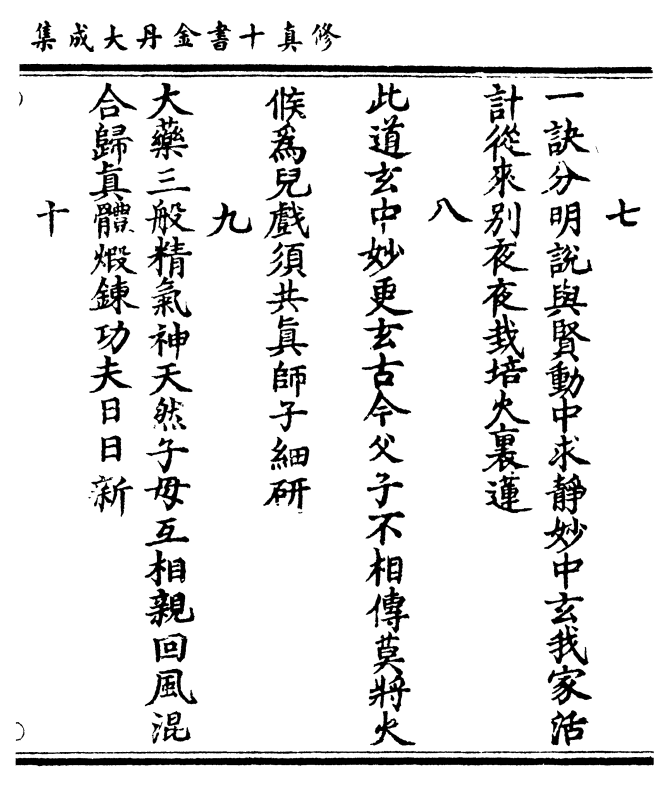 修真十書金丹大成集
七
一訣分明說與賢動中求靜妙中玄我家活
計從來別夜夜栽培火裏蓮
八
此道玄中妙更玄古今父子不相傳莫將火
候爲兒戲須共眞師子細研
九
大藥三般精氣神天然子母互相親回風混
合歸眞體煆鍊功夫日日新
十